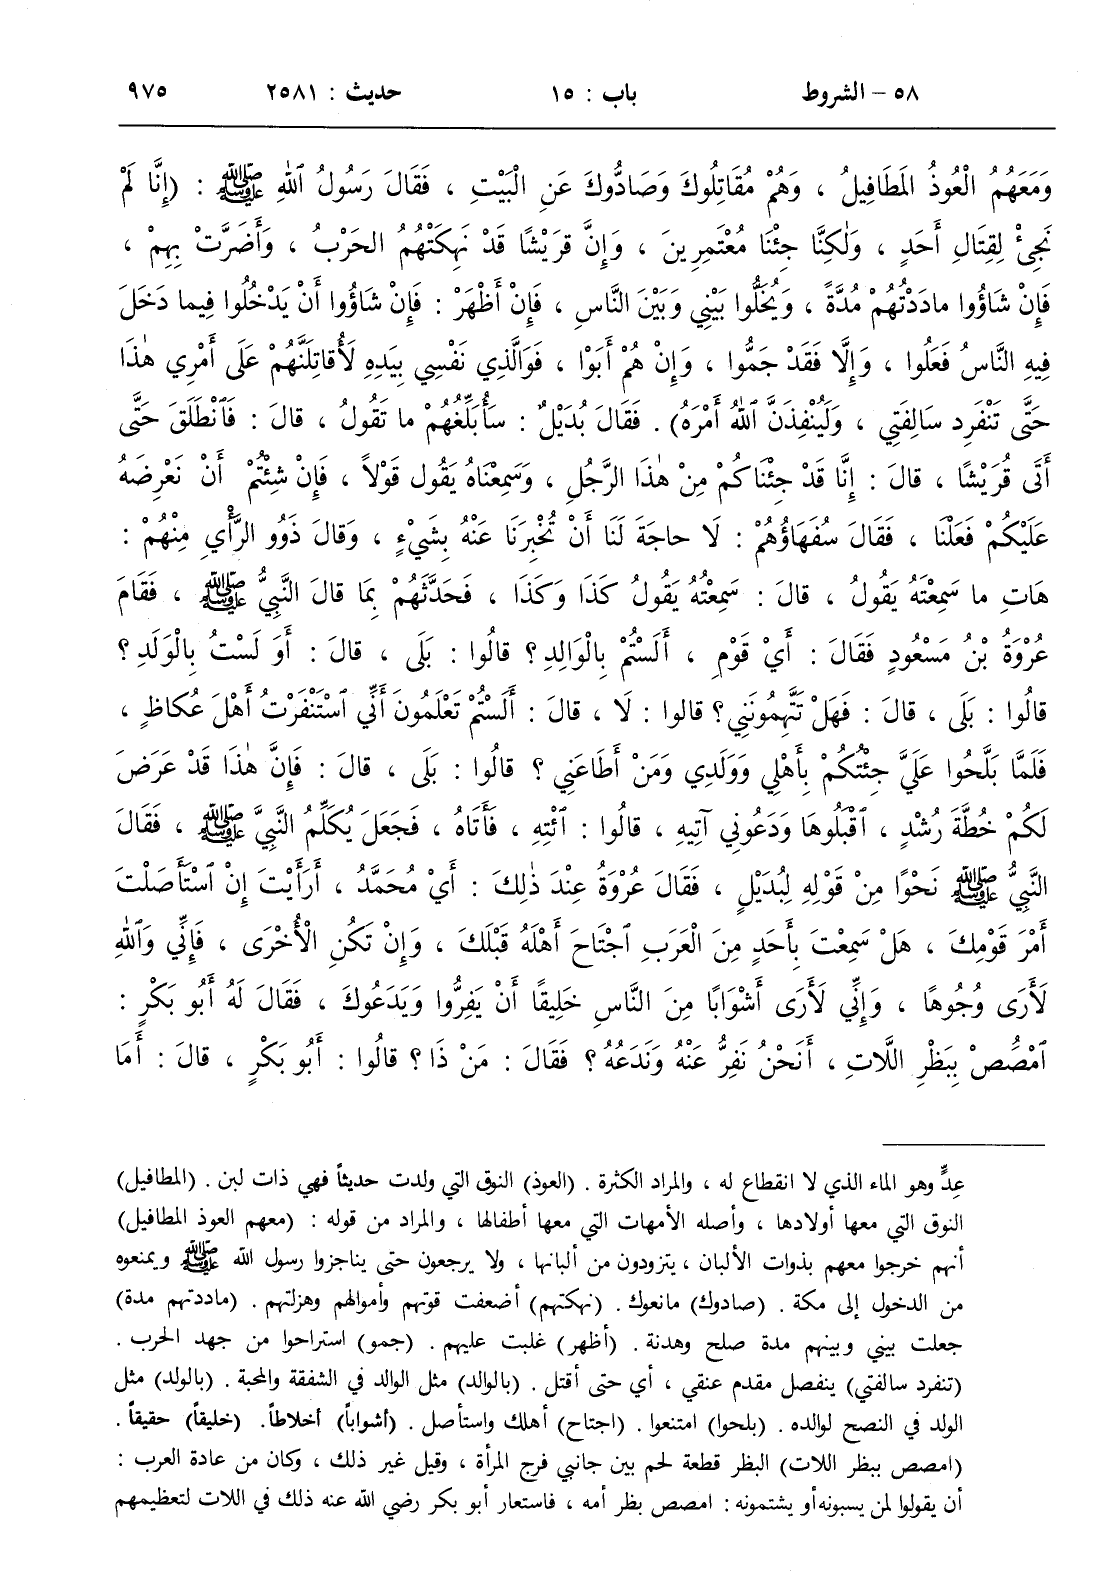 ٥٨ - الشروط باب : ١٥ حديث : ٢٥٨١ ٩٧٥
وَمَعَهُمُ الْعُوذُ المَطَافِيلُ ، وَهُمْ مُقَاتِلُوكَ وَصَادُّوكَ عَنِ الْبَيْتِ ، فَقَالَ رَسُولُ ٱللهِ ﷺ : (إِنَّا لَمْ
نَجِئْ لِقِتَالِ أَحَدٍ ، وَلٰكِنَّا جِئْنَا مُعْتَمِرِينَ ، وَإِنَّ قُرَيْشًا قَدْ نَهِكَتْهُمُ الحَرْبُ ، وَأَضَرَّتْ بِهِمْ ،
فَإِنْ شَاؤُوا مادَدْتُهُمْ مُدَّةً ، وَيُخَلُّوا بَيْنِي وَبَيْنَ النَّاسِ ، فَإِنْ أَظْهَرْ : فَإِنْ شَاؤُوا أَنْ يَدْخُلُوا فِيما دَخَلَ
فِيهِ النَّاسُ فَعَلُوا ، وَإِلَّا فَقَدْ جَمُّوا ، وَإِنْ هُمْ أَبَوْا ، فَوَالَّذِي نَفْسِي بِيَدِهِ لَأُقاتِلَنَّهُمْ عَلَى أَمْرِي هٰذَا
حَتَّى تَنْفَرِد سَالِفَتِي ، وَلَيُنْفِذَنَّ ٱللهُ أَمْرَهُ) . فَقَالَ بُدَيْلٌ : سَأُبَلِّغُهُمْ ما تَقُولُ ، قالَ : فَٱنْطَلَقَ حَتَّى
أَتَى قُرَيْشًا ، قالَ : إِنَّا قَدْ جِئْنَاكُمْ مِنْ هٰذَا الرَّجُلِ ، وَسَمِعْنَاهُ يَقُول قَوْلاً ، فَإِنْ شِئْتُمْ أَنْ نَعْرِضَهُ
عَلَيْكُمْ فَعَلْنَا ، فَقَالَ سُفَهَاؤُهُمْ : لَا حاجَةَ لَنَا أَنْ تُخْبِرَنَا عَنْهُ بِشَيْءٍ ، وَقالَ ذَوُو الرَّأْيِ مِنْهُمْ :
هَاتِ ما سَمِعْتَهُ يَقُولُ ، قالَ : سَمِعْتُهُ يَقُولُ كَذَا وَكَذَا ، فَحَدَّثَهُمْ بِمَا قالَ النَّبِيُّ ﷺ ، فَقَامَ
عُرْوَةُ بْنُ مَسْعُودٍ فَقَالَ : أَيْ قَوْمِ ، أَلَسْتُمْ بِالْوَالِدِ؟ قالُوا : بَلَى ، قالَ : أَوَ لَسْتُ بِالْوَلَدِ؟
قالُوا : بَلَى ، قالَ : فَهَلْ تَتَّهِمُونَنِي؟ قالوا : لَا ، قالَ : أَلَسْتُمْ تَعْلَمُونَ أَنِّي ٱسْتَنْفَرْتُ أَهْلَ عُكاظٍ ،
فَلَمَّا بَلَّحُوا عَلَيَّ جِئْتُكُمْ بِأَهْلِي وَوَلَدِي وَمَنْ أَطَاعَنِي ؟ قالُوا : بَلَى ، قالَ : فَإِنَّ هٰذَا قَدْ عَرَضَ
لَكُمْ خُطَّةَ رُشْدٍ ، ٱقْبَلُوهَا وَدَعُونِي آتِيهِ ، قالُوا : ٱئْتِهِ ، فَأَتَاهُ ، فَجَعَلَ يُكَلِّمُ النَّبِيَّ ﷺ ، فَقَالَ
النَّبِيُّ ﷺ نَحْوًا مِنْ قَوْلِهِ لِبُدَيْلٍ ، فَقَالَ عُرْوَةُ عِنْدَ ذٰلِكَ : أَيْ مُحَمَّدُ ، أَرَأَيْتَ إِنِ ٱسْتَأْصَلْتَ
أَمْرَ قَوْمِكَ ، هَلْ سَمِعْتَ بِأَحَدٍ مِنَ الْعَرَبِ ٱجْتَاحَ أَهْلَهُ قَبْلَكَ ، وَإِنْ تَكُنِ الْأُخْرَى ، فَإِنِّي وَٱللهِ
لَأَرَى وُجُوهًا ، وَإِنِّي لَأَرَى أَشْوَابًا مِنَ النَّاسِ خَلِيقًا أَنْ يَفِرُّوا وَيَدَعُوكَ ، فَقَالَ لَهُ أَبُو بَكْرٍ :
ٱمْصُصْ بِبَظْرِ اللَّاتِ ، أَنَحْنُ نَفِرُّ عَنْهُ وَنَدَعُهُ ؟ فَقَالَ : مَنْ ذَا ؟ قالُوا : أَبُو بَكْرٍ ، قالَ : أَمَا
عِدٍّ وهو الماء الذي لا انقطاع له ، والمراد الكثرة . (العوذ) النوق التي ولدت حديثاً فهي ذات لبن . (المطافيل)
النوق التي معها أولادها ، وأصله الأمهات التي معها أطفالها ، والمراد من قوله : (معهم العوذ المطافيل)
أنهم خرجوا معهم بذوات الألبان ، يتزودون من ألبانها ، ولا يرجعون حتى يناجزوا رسول الله ﷺ ويمنعوه
من الدخول إلى مكة . (صادوك) مانعوك . (نهكتهم) أضعفت قوتهم وأموالهم وهزلتهم . (ماددتهم مدة)
جعلت بيني وبينهم مدة صلح وهدنة . (أظهر) غلبت عليهم . (جمو) استراحوا من جهد الحرب .
(تنفرد سالفتي) ينفصل مقدم عنقي ، أي حتى أقتل . (بالوالد) مثل الوالد في الشفقة والمحبة . (بالولد) مثل
الولد في النصح لوالده . (بلحوا) امتنعوا . (اجتاح) أهلك واستأصل . (أشواباً) أخلاطاً. (خليقاً) حقيقاً .
(امصص ببظر اللات) البظر قطعة لحم بين جانبي فرج المرأة ، وقيل غير ذلك ، وكان من عادة العرب :
أن يقولوا لمن يسبونه أو يشتمونه : امصص بظر أمه ، فاستعار أبو بكر رضي الله عنه ذلك في اللات لتعظيمهم